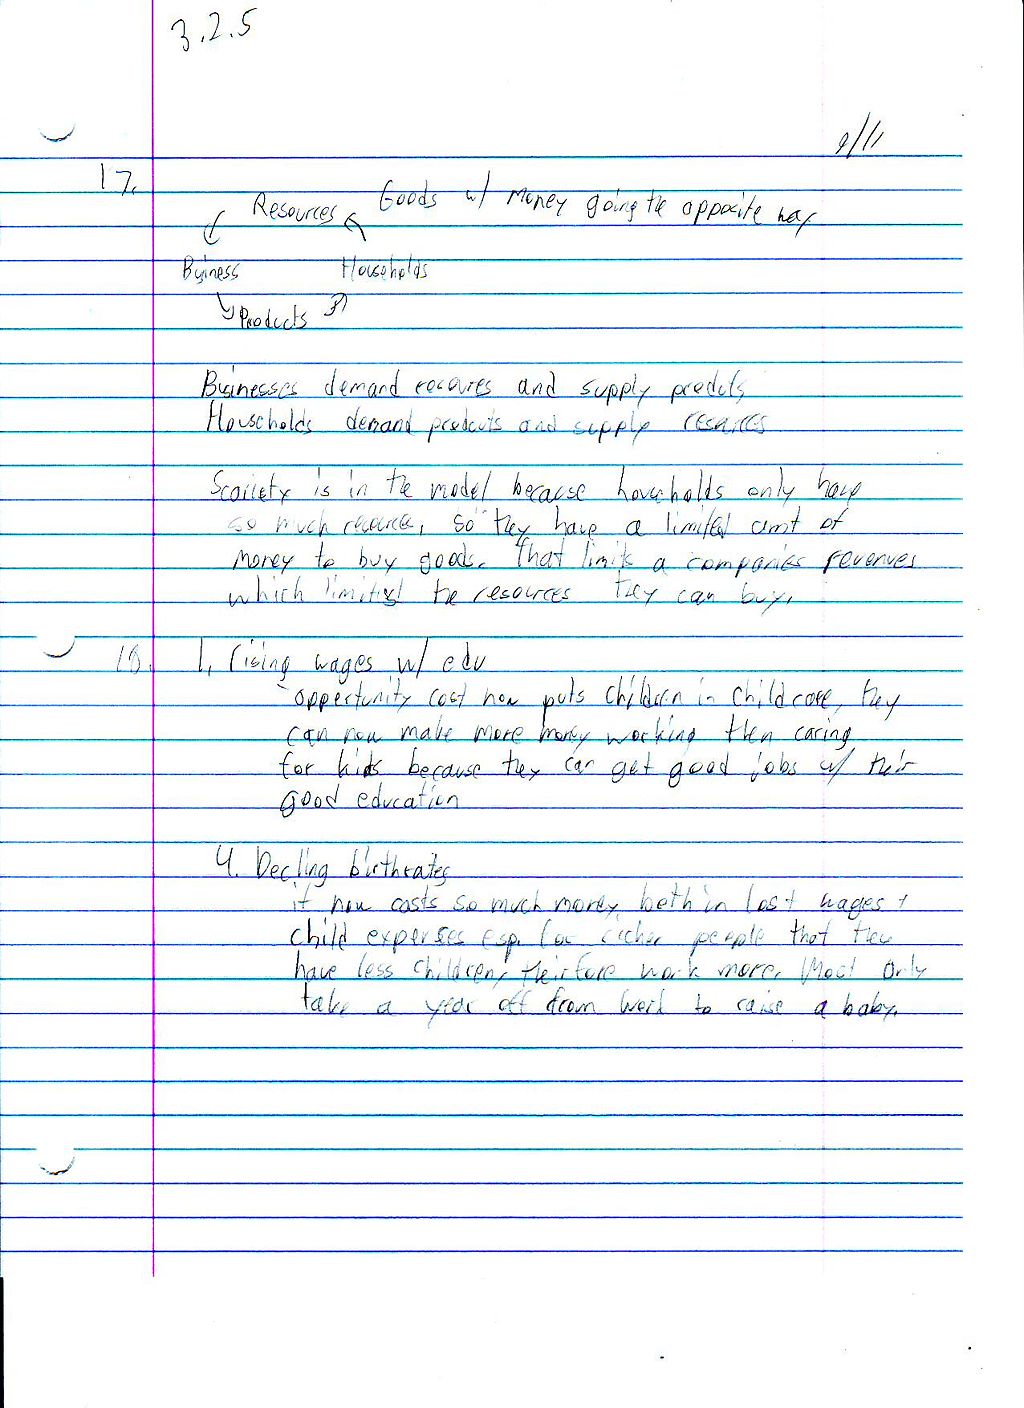 3.2.5
9/11
17.
Resources Goods w/ Money going the opposite way
Business Households
Products
Businesses demand and supply
Households demand products and supply
Scailety is in the model because households only have
so much so they have a limited amt of
money to buy goods. That limits a companies revenues
which the resources they can buy.
18. 1. rising wages w/ edu
opportunity cost now puts children in childcare, they
can now make more money working then caring
for kids because they can get good jobs w/ their
good education
4. Decling birthrates
it now costs so much money both in lost wages +
child expenses esp. for richer people that they
have less children, work more. Most only
take a year off from work to raise a baby.